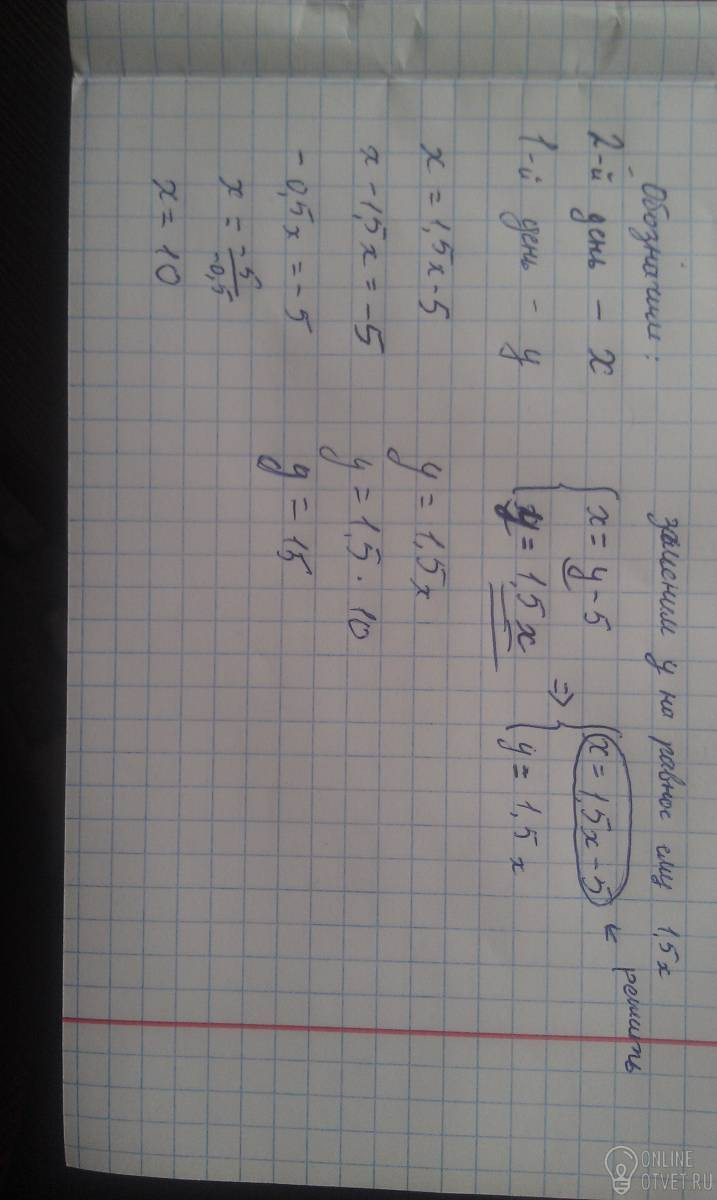 Обозначим:
2-й день - x
1-й день - y
заменим y на равное ему 1,5x
{ x = y - 5
{ y = 1,5x
=> { x = 1,5x - 5 ← решить
{ y = 1,5x
x = 1,5x - 5
x - 1,5x = -5
- 0,5x = -5
x = -5/-0,5
x = 10
y = 1,5x
y = 1,5 · 10
y = 15
ONLINE
OTVET.RU